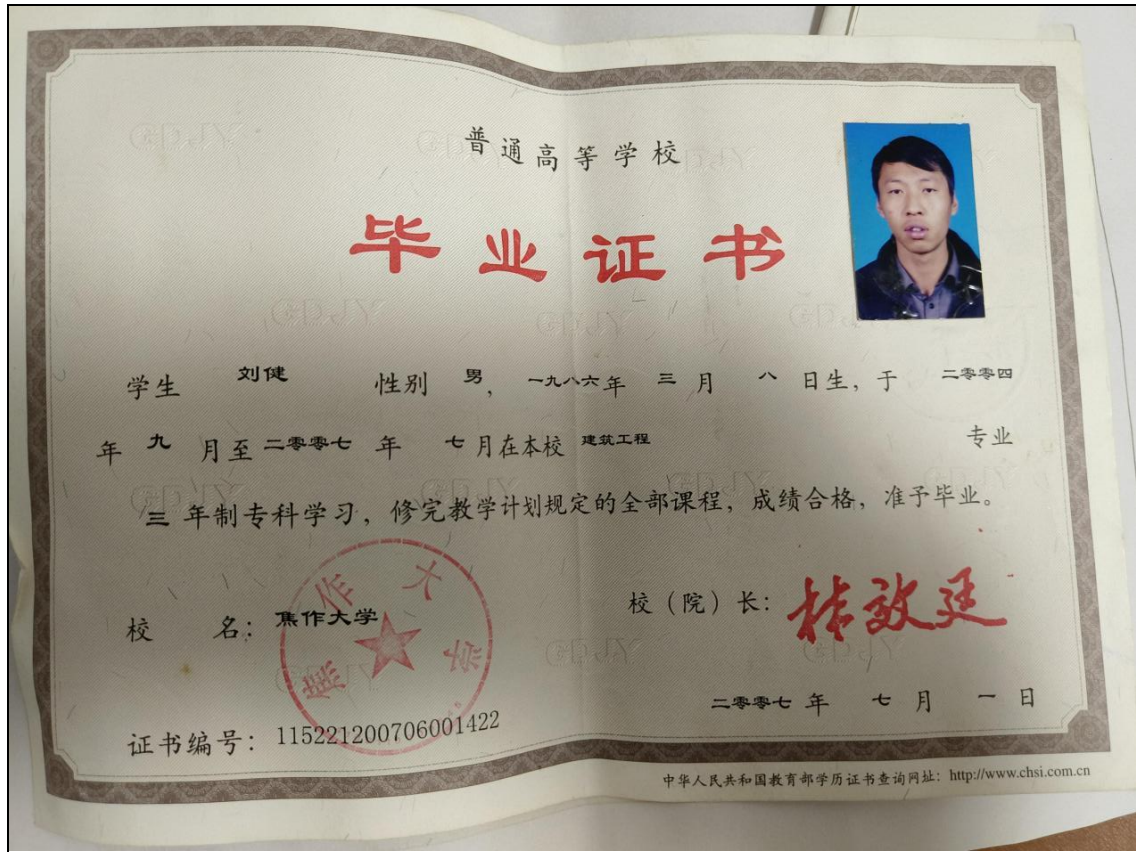 普通高等学校
毕业证书
学生 刘健 性别 男, 一九八六年 三 月 八 日生, 于 二零零四
年 九 月至 二零零七 年 七 月在本校 建筑工程 专业
三 年制专科学习, 修完教学计划规定的全部课程, 成绩合格, 准予毕业。
校 名: 焦作大学
焦作大学
校(院)长:
二零零七 年 七 月 一 日
证书编号: 115221200706001422
中华人民共和国教育部学历证书查询网址: http://www.chsi.com.cn